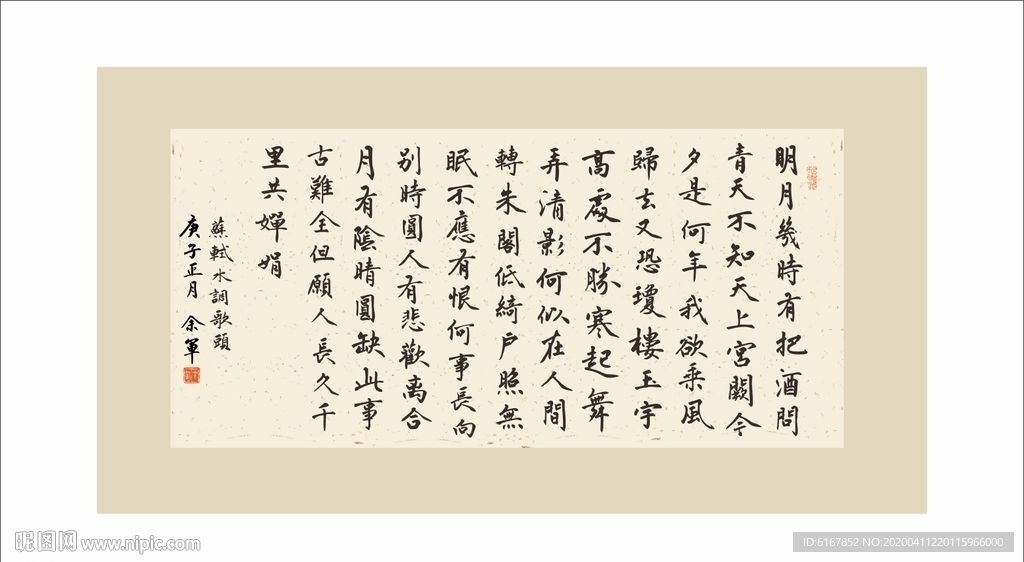 明月幾時有把酒問
青天不知天上宮闕今
夕是何年我欲乘風
歸去又恐瓊樓玉宇
高處不勝寒起舞
弄清影何似在人間
轉朱閣低綺户照無
眠不應有恨何事長向
别時圓人有悲歡离合
月有陰晴圓缺此事
古難全但願人長久千
里共嬋娟
蘇軾水調歌頭
庚子正月 余軍
昵图网 www.nipic.com
ID:6167852 NO:20200411220115966000